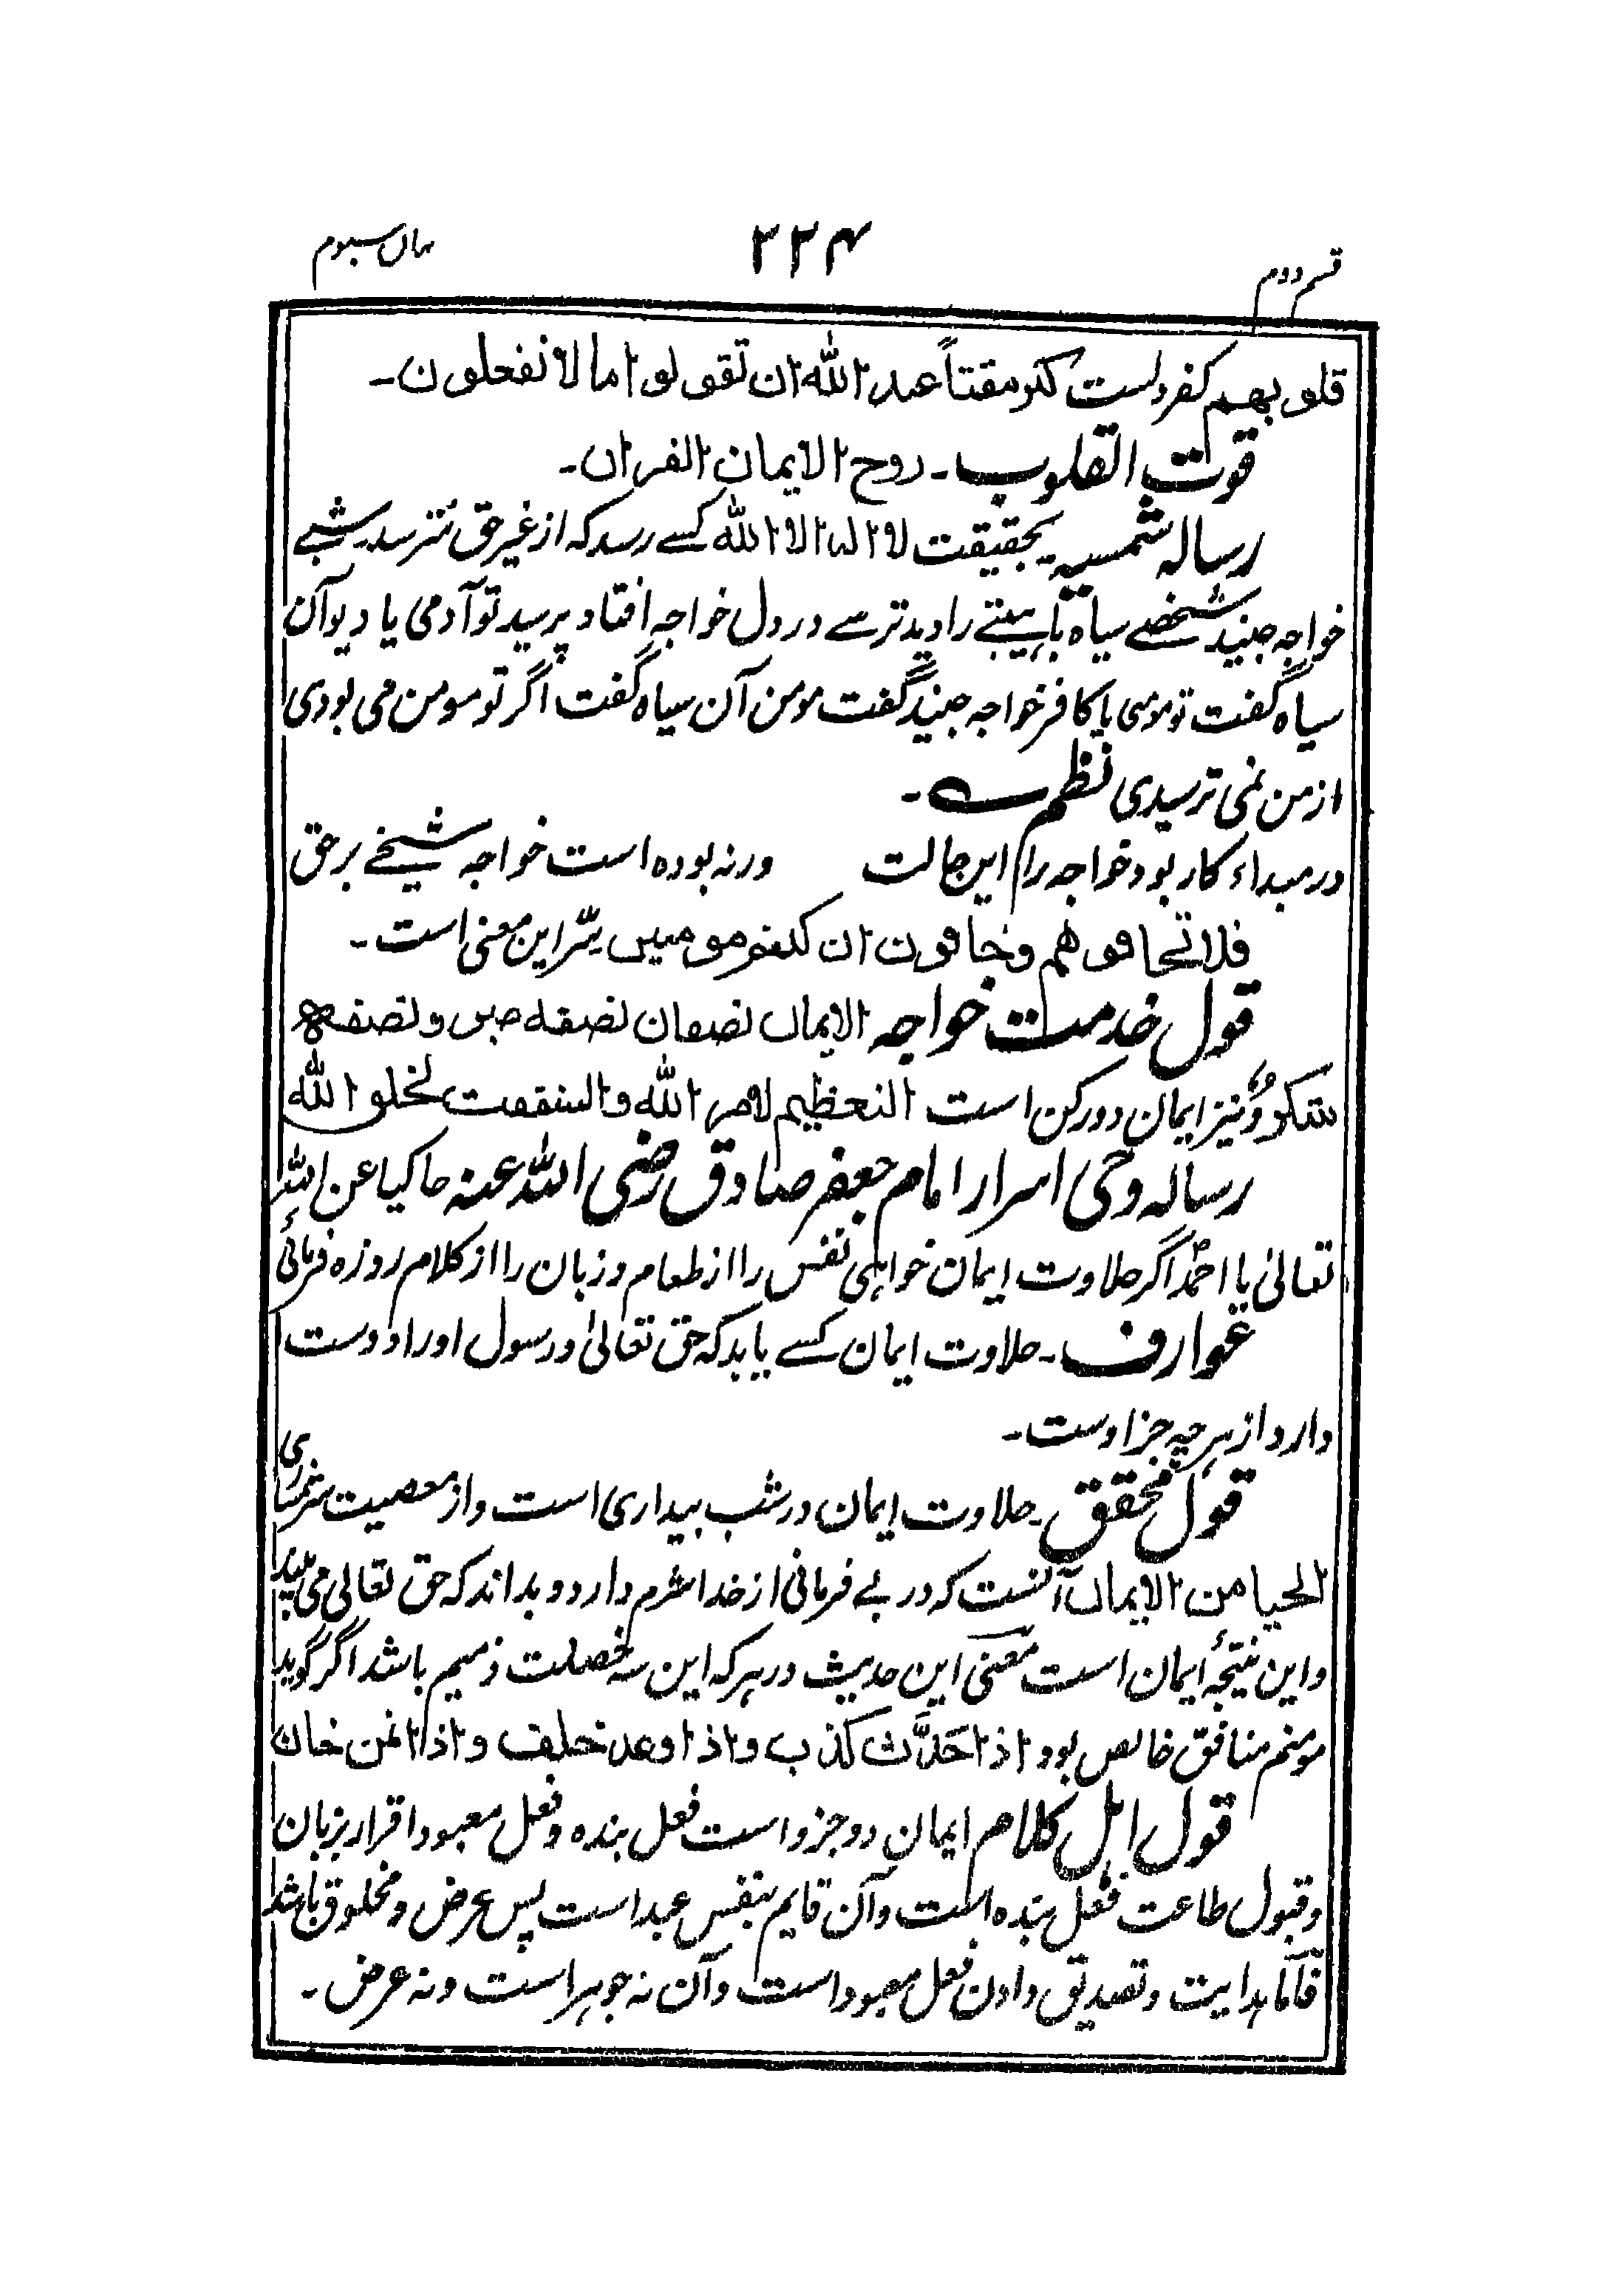 قسم دوم ۲۲۴ بیان سیوم
قلوبهم کفر و لست کبر مقتاً عند الله ان تقولوا ما لا تفعلون۔
قوت القلوب۔ روح الایمان القران۔
رساله شمسیه بحقیقت لا اله الا الله کسے رسد که از غیر حق نترسد شبے
خواجه جنید شخصے سیاه باهیبتے را دید ترسے در دل خواجه افتاد پرسید تو آدمی یا دیو آن
سیاه گفت تو مومنی یا کافر خواجه جنید گفت مومن آن سیاه گفت اگر تو مومن می بودی
از من نمی ترسیدی نظم۔
در مبداء کار بود خواجه را این حالت ورنه بوده است خواجه شیخے برحق
فلا تخافوهم وخافون ان کنتم مومنین سّر این معنی است۔
قول خدمت خواجه الایمان نصفان نصفه صبر ونصفه
شکر و نیز ایمان دو رکن است التعظیم لامر الله والشفقت لخلق الله
رساله وحی اسرار امام جعفر صادق رضی الله عنه حاکیا عن الله
تعالیٰ یا احمد اگر حلاوت ایمان خواهی نفس را از طعام و زبان را از کلام روزه فرمائی
عوارف۔ حلاوت ایمان کسے یابد که حق تعالیٰ و رسول او را دوست
دارد از هرچه جز اوست۔
قول محقق۔ حلاوت ایمان در شب بیداری است و از معصیت شرمساری
الحیا من الایمان آنست که در بے فرمانی از خدا شرم دارد و بداند که حق تعالی می بیند
و این نتیجهٔ ایمان است معنی این حدیث در هرکه این سه خصلت ذمیم باشد اگر گوید
مومنم منافق خالص بود اذا حَدَّث کذب و اذا وعد خلف و اذا ائتمن خان
قول اهل کلام ایمان دو جزو است فعل بنده و فعل معبود اقرار بزبان
و قبول طاعت فعل بنده است و آن قایم بنفس عبد است پس عرض و مخلوق باشد
فاَمّا هدایت و تصدیق دادن فعل معبود است و آن نه جوهر است و نه عرض۔